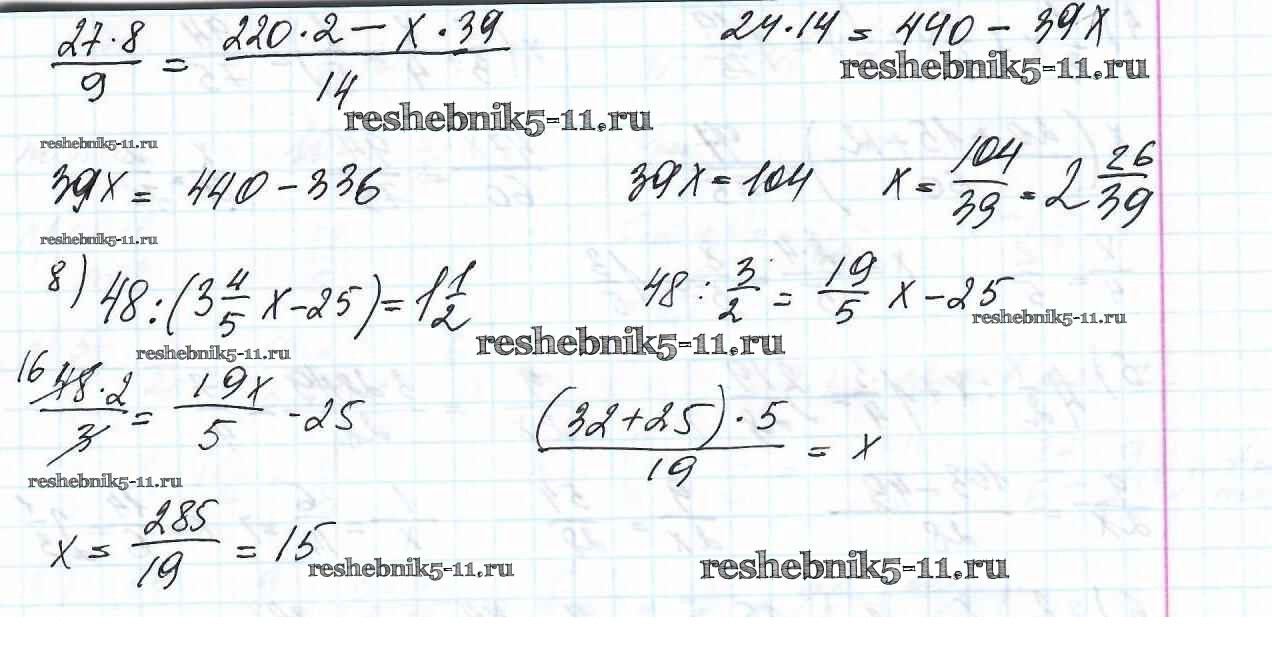 27·8/9 = (220·2 − x·39)/14    24·14 = 440 − 39x
reshebnik5-11.ru
reshebnik5-11.ru
reshebnik5-11.ru
39x = 440 − 336    39x = 104    x = 104/39 = 2 26/39
reshebnik5-11.ru
8) 48 : (3 4/5 x − 25) = 1 1/2    48 : 3/2 = 19/5 x − 25
reshebnik5-11.ru
reshebnik5-11.ru
reshebnik5-11.ru
16 48·2/3 = 19x/5 − 25    (32+25)·5/19 = x
reshebnik5-11.ru
x = 285/19 = 15
reshebnik5-11.ru
reshebnik5-11.ru